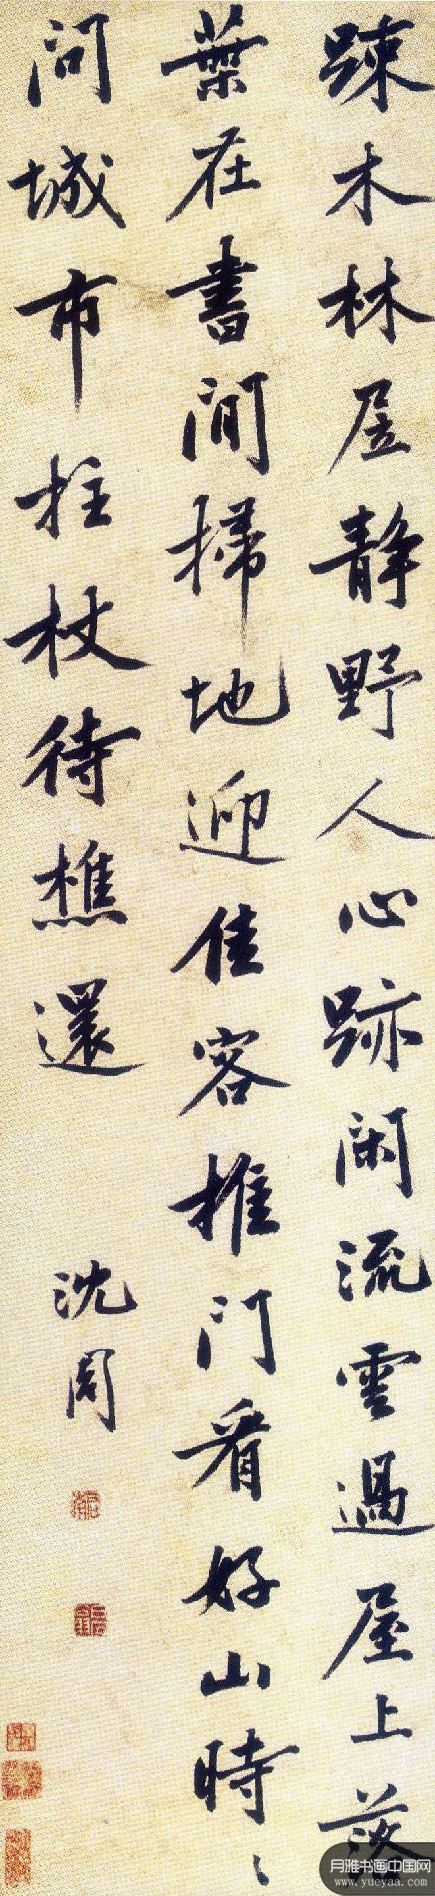 踈木林居静野人心跡閑流雲過屋上落
葉在書間掃地迎佳客推門看好山時〻
問城市拄杖待樵還
沈周
月雅书画中国网
www.yueyaa.com